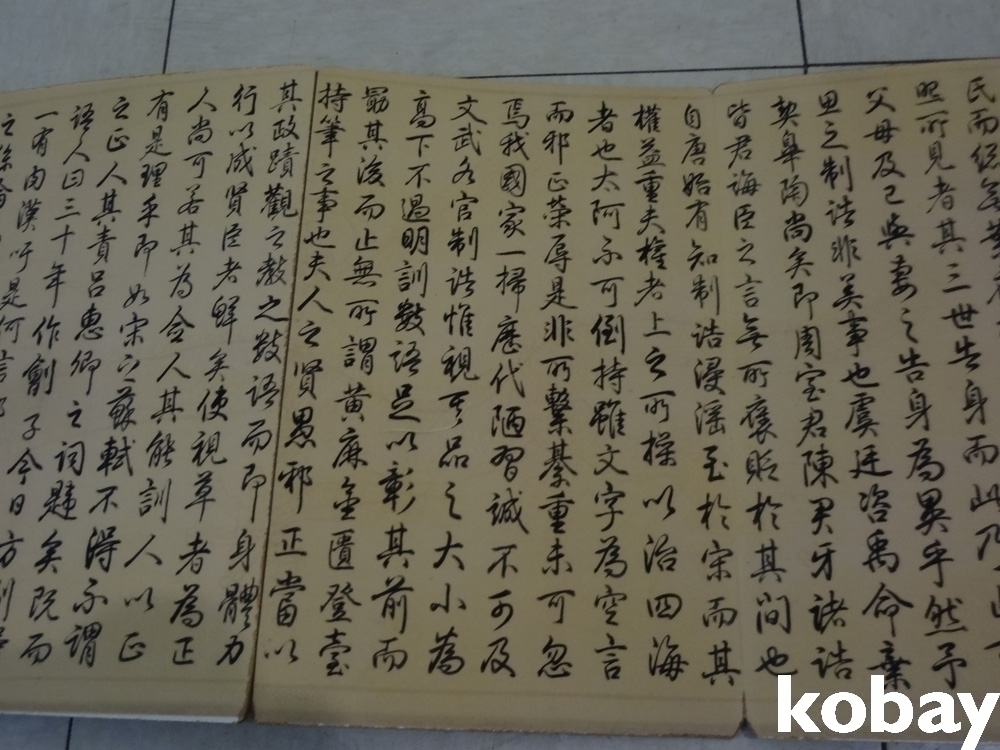 民而
照所見者其三世告身而此乃
父母及己與妻之告身為異乎然予
思之制誥非美事也虞廷咨禹命棄
契皋陶尚矣即周室君陳君牙諸誥
皆君誨臣之言無所褒貶於其間也
自唐始有知制誥浸淫至於宋而其
權益重夫權者上之所操以治四海
者也太阿不可倒持雖文字為空言
而邪正榮辱是非所繫綦重未可忽
焉我國家一掃歷代陋習誠不可及
文武各官制誥惟視其品之大小為
高下不過明訓數語足以彰其前而
勗其後而止無所謂黃麻金匱登臺
持筆之事也夫人之賢愚邪正當以
其政蹟觀之教之數語而即身體力
行以成賢臣者鮮矣使視草者為正
人尚可若其為僉人其能訓人以正
有是理乎即如宋之蘇軾不得不謂
之正人其責呂惠卿之詞韙矣既而
語人曰三十年作劊子今日方剮得
一有肉漢吁是何言耶
之絲綸
kobay